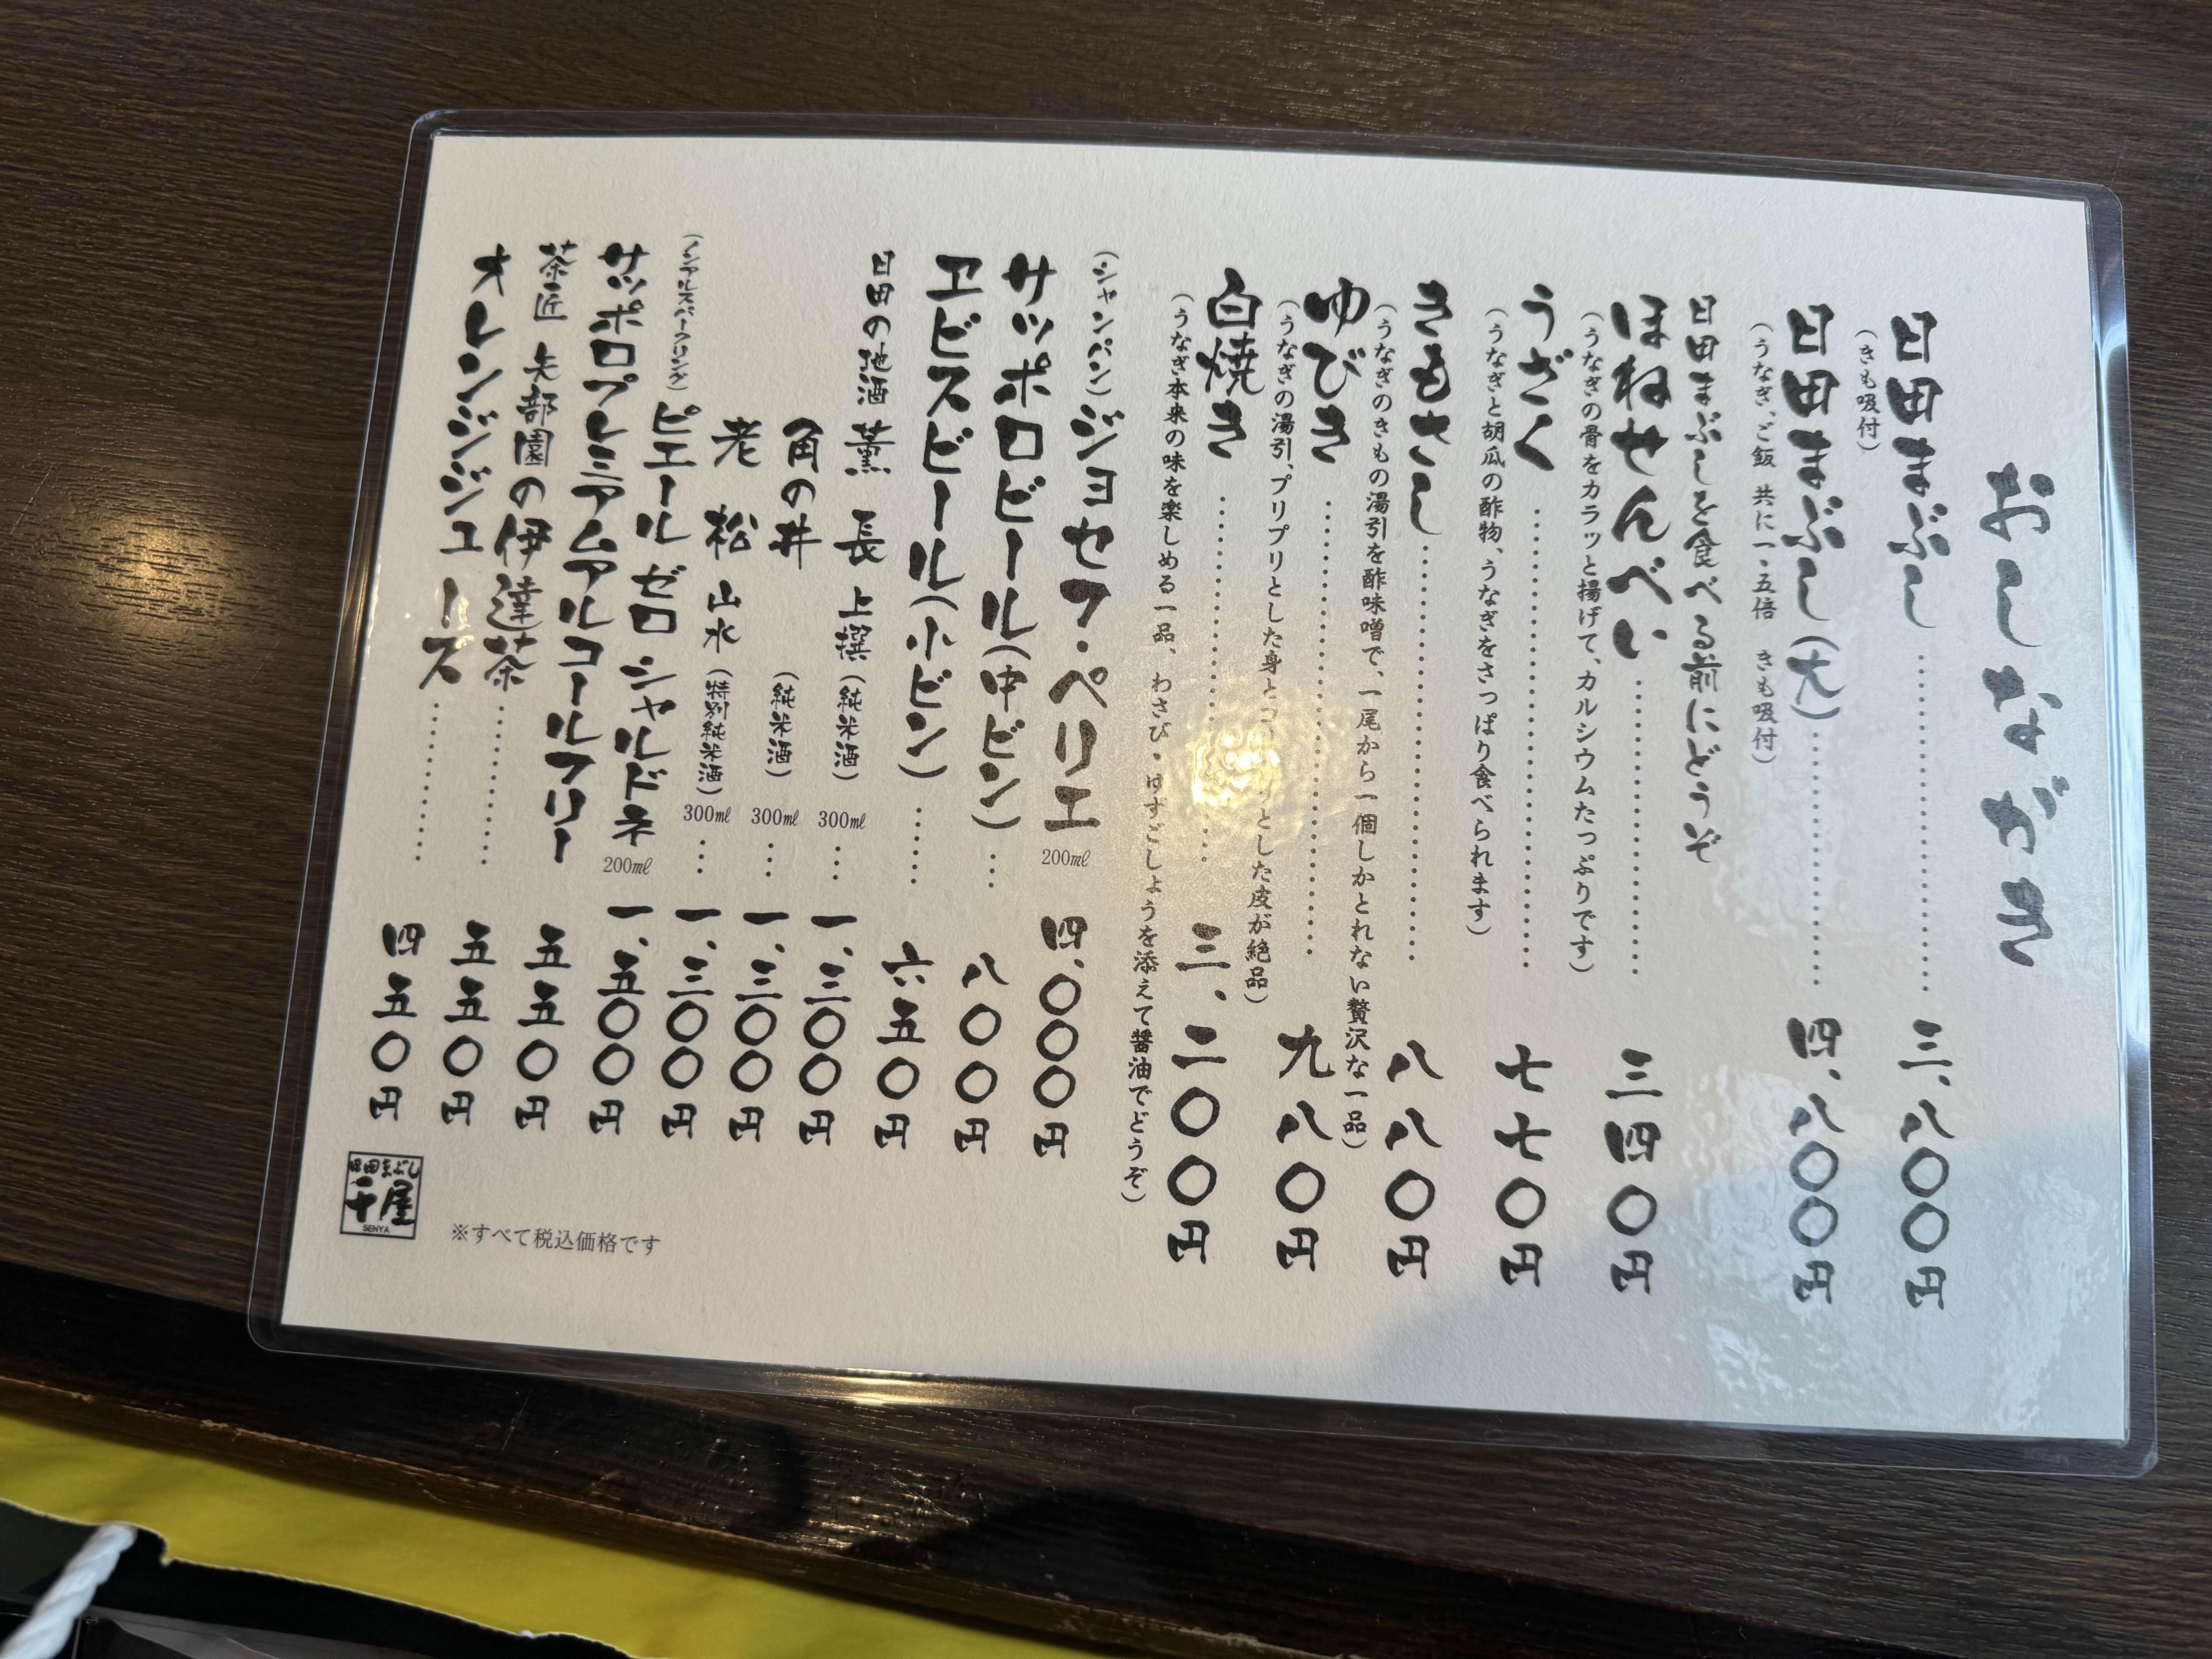 おしながき
日田まぶし………三、八〇〇円
(きも吸付)
日田まぶし(大)………四、八〇〇円
(うなぎ、ご飯 共に一・五倍 きも吸付)
日田まぶしを食べる前にどうぞ
ほねせんべい………三四〇円
(うなぎの骨をカラッと揚げて、カルシウムたっぷりです)
うざく………七七〇円
(うなぎと胡瓜の酢物、うなぎをさっぱり食べられます)
きもさし………八八〇円
(うなぎのきもの湯引を酢味噌で、一尾から一個しかとれない贅沢な一品)
ゆびき………九八〇円
(うなぎの湯引、プリプリとした身とコリコリとした皮が絶品)
白焼き………三、二〇〇円
(うなぎ本来の味を楽しめる一品、わさび・ゆずごしょうを添えて醤油でどうぞ)
(シャンパン)ジョセフ・ペリエ 200㎖ 四、〇〇〇円
サッポロビール(中ビン)…八〇〇円
ヱビスビール(小ビン)……六五〇円
日田の地酒 薫長 上撰(純米酒) 300㎖…一、三〇〇円
角の井 (純米酒) 300㎖…一、三〇〇円
老松 山水(特別純米酒) 300㎖…一、三〇〇円
(ノンアルスパークリング)ピエール ゼロ シャルドネ 200㎖ 一、五〇〇円
サッポロプレミアムアルコールフリー 五五〇円
茶匠 矢部園の伊達茶………五五〇円
オレンジジュース………四五〇円
※すべて税込価格です
日田まぶし
千屋
SENYA